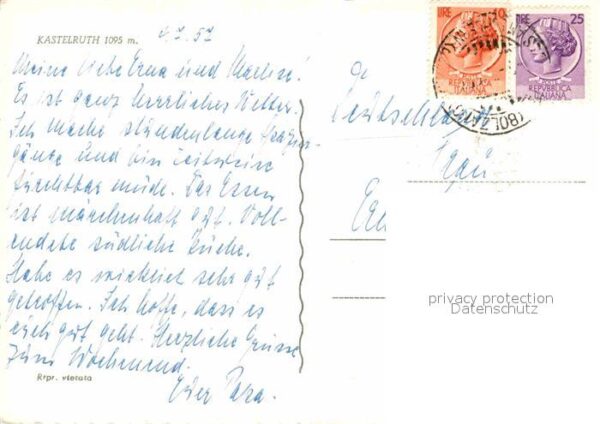 KASTELRUTH 1095 m.
4.7.57
Meine liebe Erna und
Es ist ganz herrliches Wetter.
Ich mache stundenlange Spazier-
gänge und bin zeitweise
furchtbar müde. Das Essen
ist märchenhaft gut. Voll-
endete südliche Küche.
Habe es wirklich sehr gut
getroffen. Ich hoffe, dass es
euch gut geht. Herzliche Grüsse
zum Wochenend.
Euer Papa.
Ripr. vietata
LIRE
REPVBBLICA
ITALIANA
25
REPVBBLICA
ITALIANA
(BOLZANO)
Deutschland
Frau
privacy protection
Datenschutz